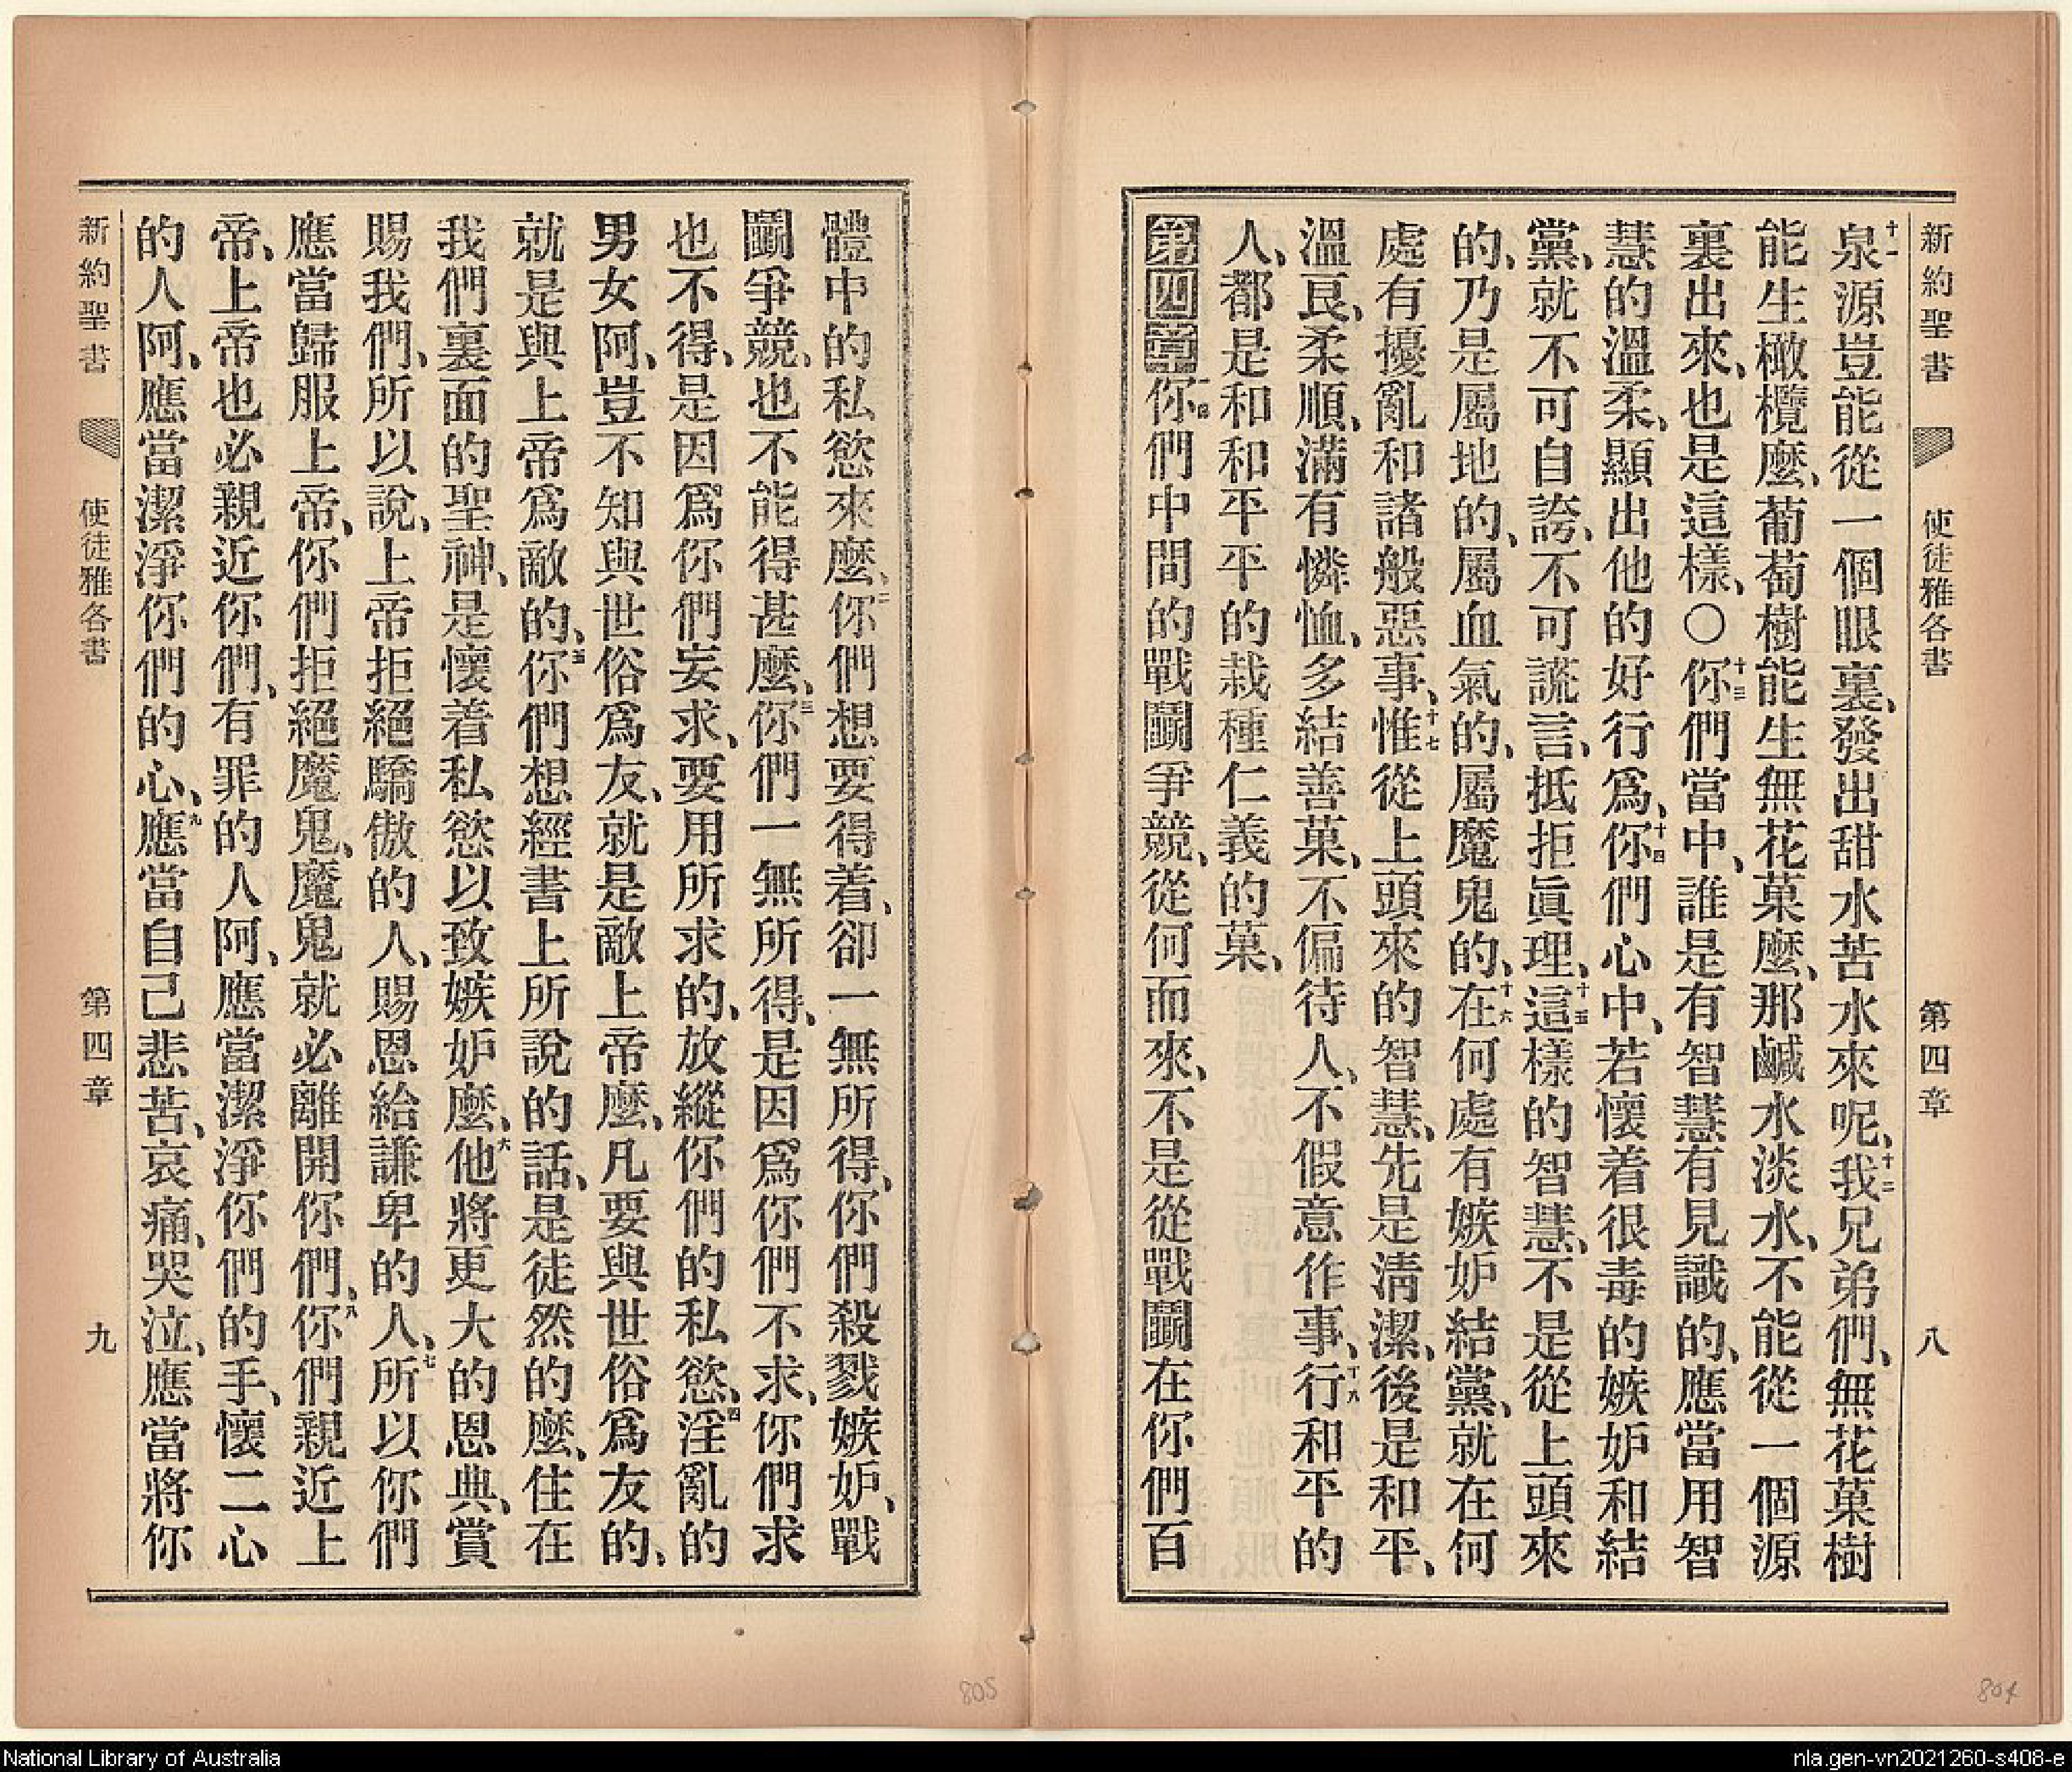 新約聖書 使徒雅各書 第四章 八
十一泉源豈能從一個眼裏、發出甜水苦水來呢、十二我兄弟們、無花菓樹
能生橄欖麼、葡萄樹能生無花菓麼、那鹹水淡水、不能從一個源
裏出來、也是這樣、〇十三你們當中、誰是有智慧有見識的、應當用智
慧的溫柔、顯出他的好行爲、十四你們心中、若懷着很毒的嫉妒和結
黨、就不可自誇、不可謊言、抵拒眞理、十五這樣的智慧、不是從上頭來
的、乃是屬地的、屬血氣的、屬魔鬼的、十六在何處有嫉妒結黨、就在何
處有擾亂和諸般惡事、十七惟從上頭來的智慧、先是淸潔、後是和平、
溫良、柔順、滿有憐恤、多結善菓、不偏待人、不假意作事、十八行和平的
人、都是和和平平的栽種仁義的菓、
第四章一你們中間的戰鬭爭競、從何而來、不是從戰鬭在你們百
體中的私慾來麼、二你們想要得着、卻一無所得、你們殺戮嫉妒、戰
鬭爭競、也不能得甚麼、三你們一無所得、是因爲你們不求、你們求
也不得、是因爲你們妄求、要用所求的、放縱你們的私慾、四淫亂的
男女阿、豈不知與世俗爲友、就是敵上帝麼、凡要與世俗爲友的、
就是與上帝爲敵的、五你們想經書上所說的話、是徒然的麼、住在
我們裏面的聖神、是懷着私慾以致嫉妒麼、六他將更大的恩典、賞
賜我們、所以說、上帝拒絕驕傲的人、賜恩給謙卑的人、七所以你們
應當歸服上帝、你們拒絕魔鬼、魔鬼就必離開你們、八你們親近上
帝、上帝也必親近你們、有罪的人阿、應當潔淨你們的手、懷二心
的人阿、應當潔淨你們的心、九應當自己悲苦、哀痛、哭泣、應當將你
新約聖書 使徒雅各書 第四章 九
805
804
National Library of Australia
nla.gen-vn2021260-s408-e